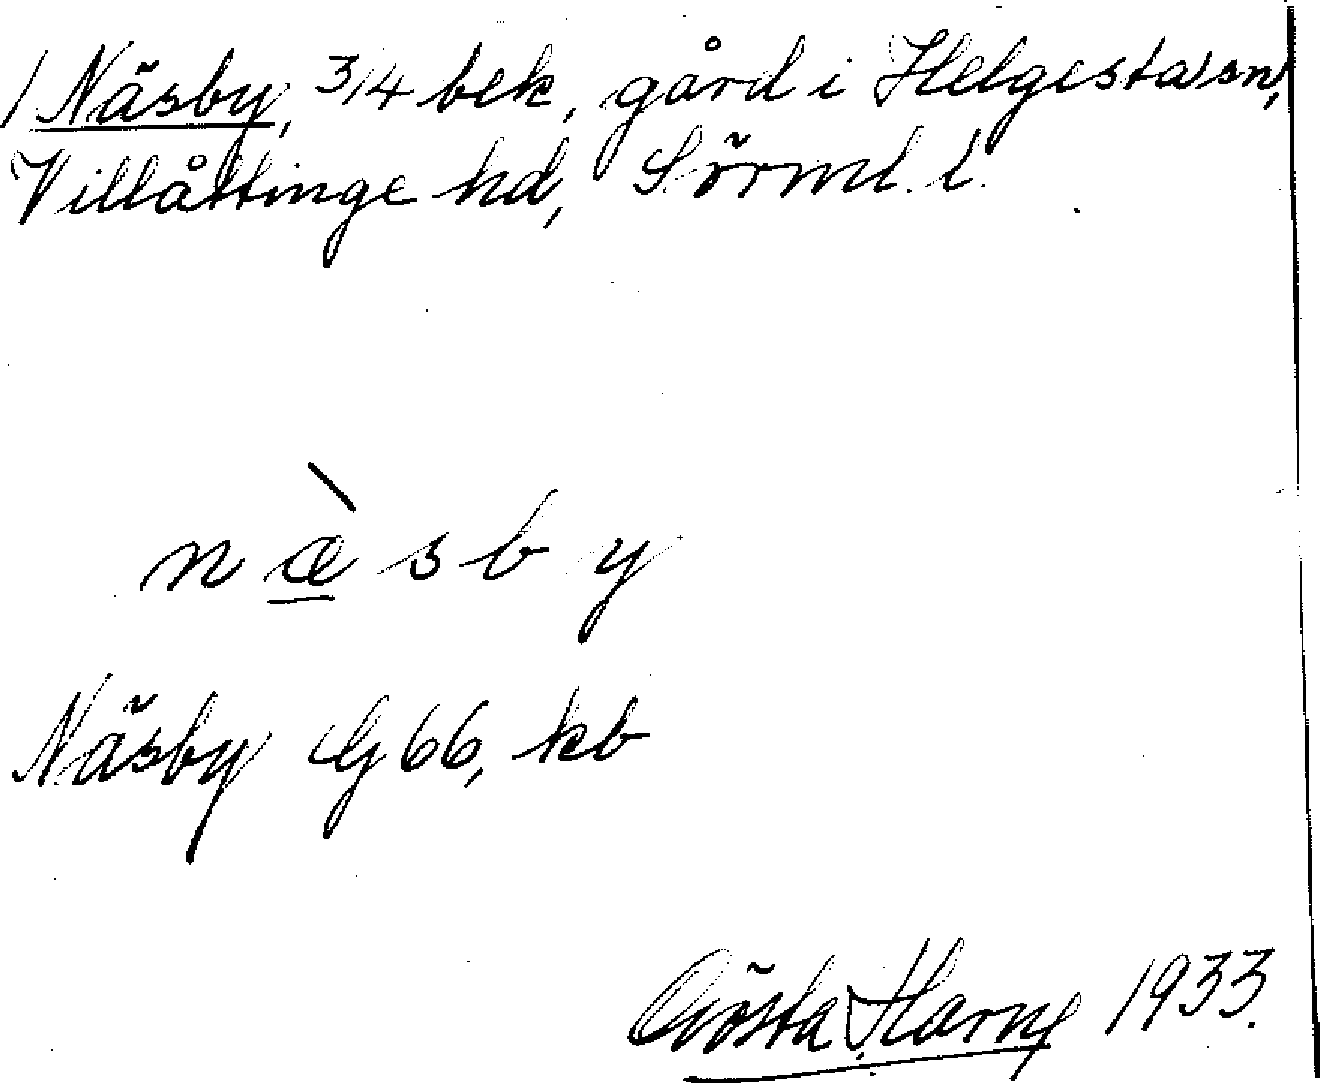 / Näsby, 3/4 bek, gård i Helgesta sn,
Villåttinge hd, Sörml. l.
næ̀sby
Näsby G 66, kb
Gösta Harng 1933.